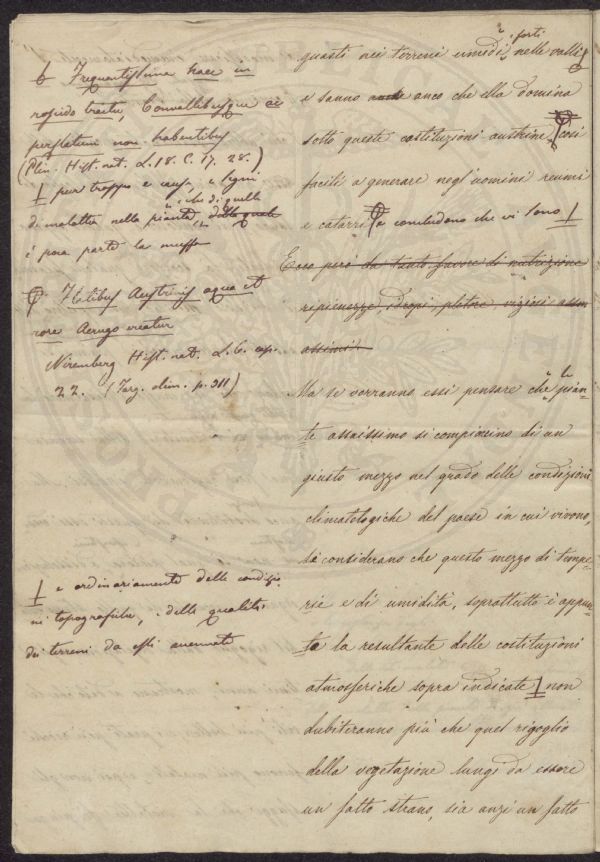 b Frequentissima haec in
roscido tractu, Convallibusque ac
perflatum non habentibus
(Plin. Hist. nat. L. 18. C. 17. 28.)
⊥ pur troppo e cause, e segni
di malattia nelle piante, e che di quelle
della quale
è poca parte la muffa
φ Flatibus Austrinis aqua et
rore Aerugo creatur
Nirenberg Hist. nat. L. 6. cap.
22. (Targ. alim. p. 311)
⊥ e ordinariamente delle condizio
ni topografiche, e delle qualità
dei terreni da essi avvertiti
e forti
questi nei terreni umidi, nelle valli b
e sanno anco che ella domina
sotto queste costituzioni austrine, φ così
facili a generare negl'uomini reumi
e catarri φ e concludono che vi sono ⊥
Esso però da tanto favore di nutrizione
ripienezze, idropi, pletore, viziosi
assimil
Ma se vorranno essi pensare che le pian-
te assaissimo si compiacino di un
giusto mezzo nel grado delle condizioni
climatologiche del paese in cui vivono,
se considerano che questo mezzo di tempe-
rie e di umidità, soprattutto è appun-
to la resultante delle costituzioni
atmosferiche sopra indicate ⊥ non
dubiteranno più che quel rigoglio
della vegetazione lungi da essere
un fatto strano, sia anzi un fatto